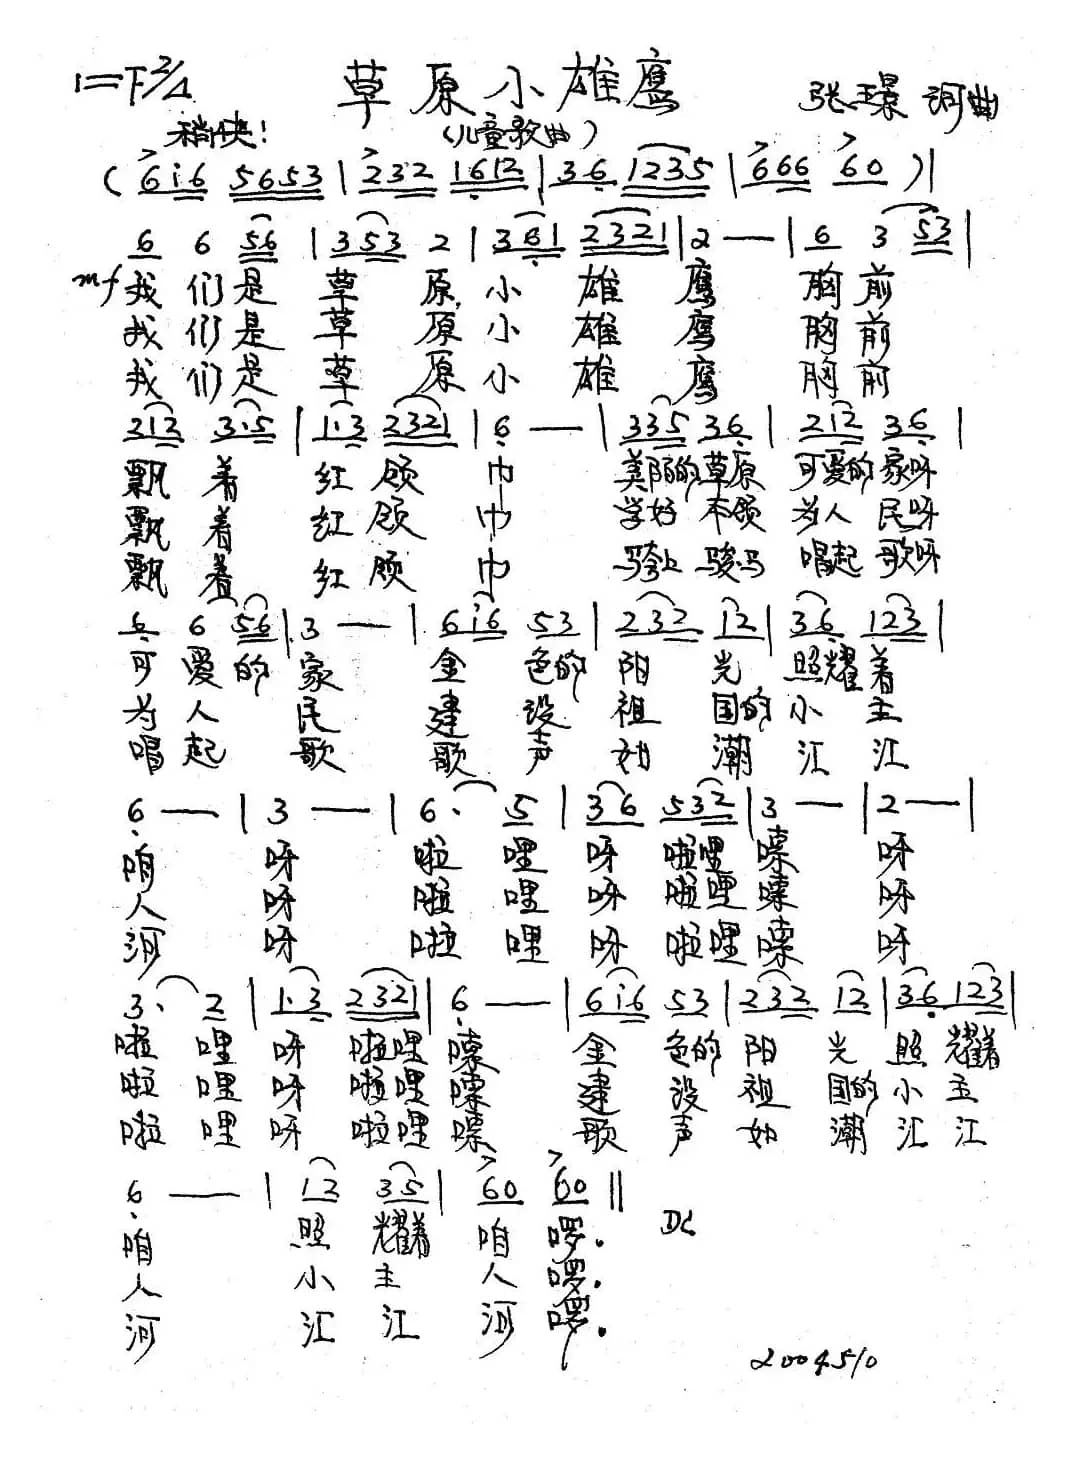 1=F 2/4 草原小雄鹰 张玉景 词曲
稍快! (儿童歌曲)
( 6i6 5653 | 232 1612 | 36 1235 | 666 60 ) |
6 6 56 | 353 2 | 361 2321 | 2 — | 6 3 53 |
mf 我们是 草 原 小 雄 鹰 胸前
我们是 草 原 小 雄 鹰 胸前
我们是 草 原 小 雄 鹰 胸前
212 3·5 | 1·3 2321 | 6 — | 335 36 | 212 36 |
飘着 红领 巾 美丽的草原 可爱的家呀
飘着 红领 巾 学好本领 为人民呀
飘着 红领 巾 骑上骏马 唱起歌呀
6 6 56 | 3 — | 6i6 53 | 232 12 | 36 123 |
可爱的 家 金 色的 阳 光 照耀着
为人 民 建 设 祖 国的 小 主
唱起 歌 歌 声 如 潮 汇 江
6 — | 3 — | 6· 5 | 36 532 | 3 — | 2 — |
咱 呀 啦 哩 呀 啦哩 嗦 呀
人 呀 啦 哩 呀 啦哩 嗦 呀
河 呀 啦 哩 呀 啦哩 嗦 呀
3· 2 | 1·3 2321 | 6 — | 6i6 53 | 232 12 | 36 123 |
啦 哩 呀 啦哩 嗦 金 色的 阳 光 照 耀着
啦 哩 呀 啦哩 嗦 建 设 祖 国的 小 主
啦 哩 呀 啦哩 嗦 歌 声 如 潮 汇 江
6 — | 12 35 | 60 60 || D.C.
咱 照 耀着 咱 啰.
人 小 主 人 啰.
河 汇 江 河 啰.
2004.5/0